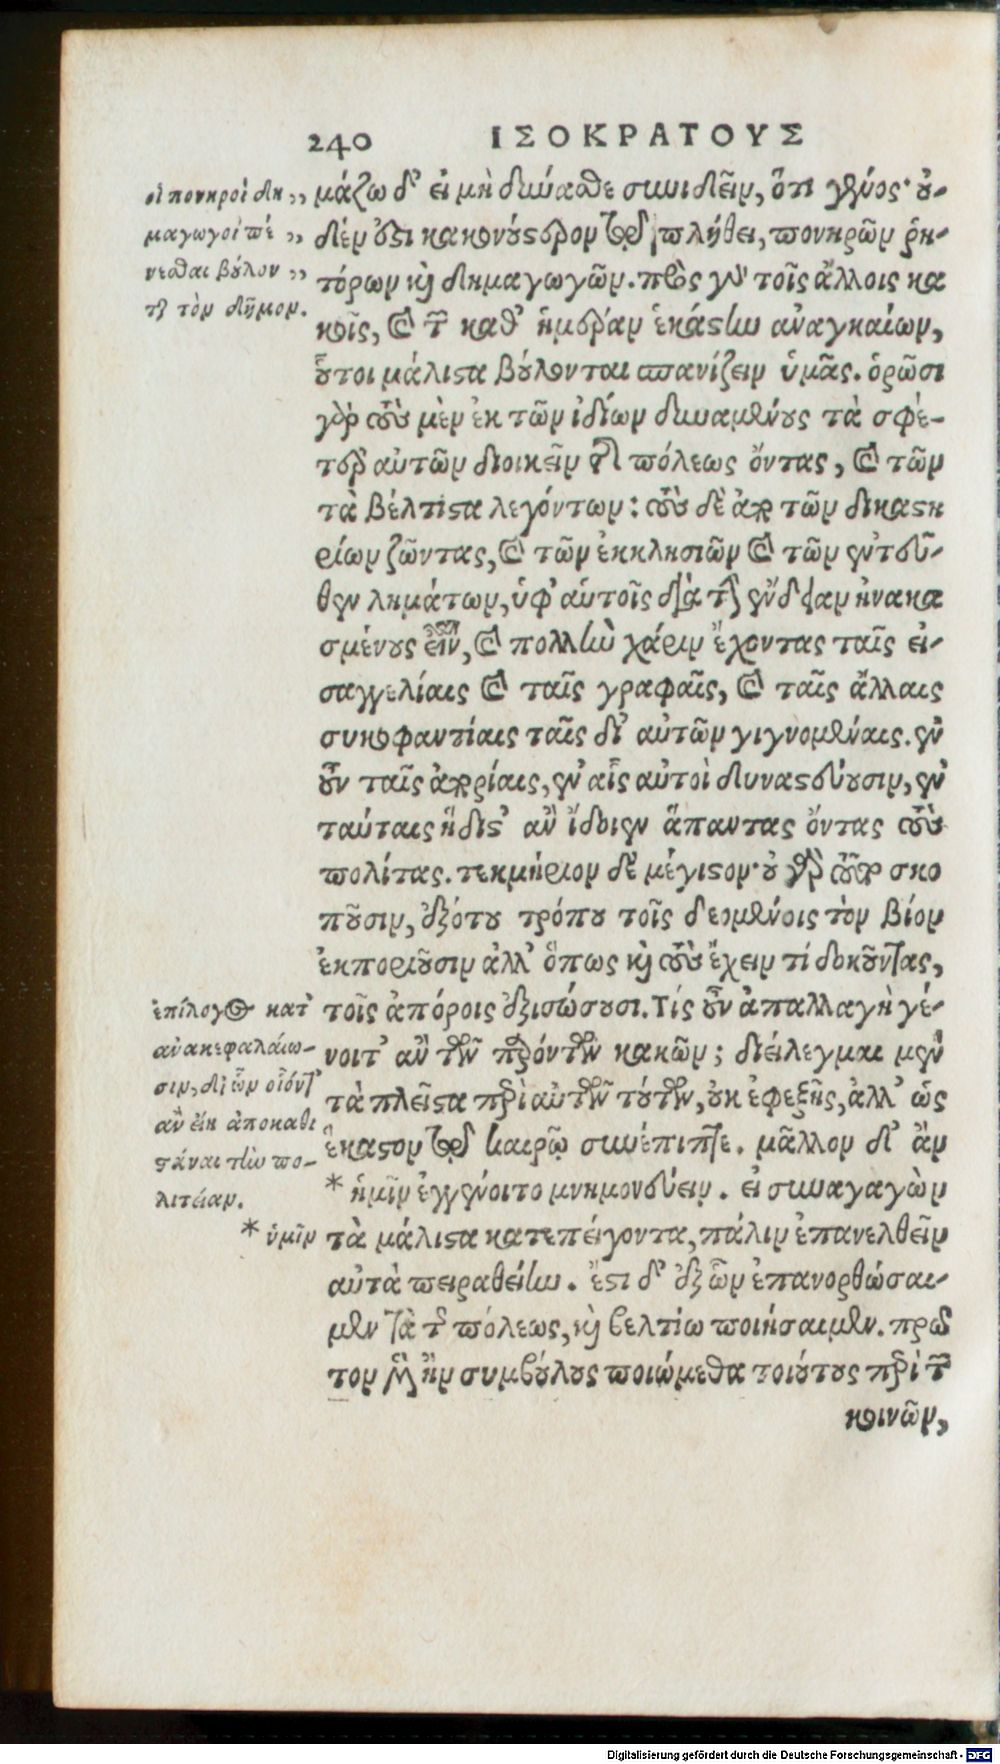 240 ΙΣΟΚΡΑΤΟΥΣ
μάζω δ' εἰ μὴ δύνασθε συνιδεῖν, ὅτι γένος οὐ-
δέν ἐστι κακονούστερον τῷ πλήθει, πονηρῶν ῥη-
τόρων καὶ δημαγωγῶν. πρὸς γὰρ τοῖς ἄλλοις κα
κοῖς, καὶ τῶν καθ' ἡμέραν ἑκάστην ἀναγκαίων,
οὗτοι μάλιστα βούλονται σπανίζειν ὑμᾶς. ὁρῶσι
γὰρ τοὺς μὲν ἐκ τῶν ἰδίων δυναμένους τὰ σφέ-
τερα αὐτῶν διοικεῖν τῆς πόλεως ὄντας, καὶ τῶν
τὰ βέλτιστα λεγόντων: τοὺς δὲ ἀπὸ τῶν δικαστη
ρίων ζῶντας, καὶ τῶν ἐκκλησιῶν καὶ τῶν ἐντεῦ-
θεν λημάτων, ὑφ' αὑτοῖς διὰ τὴν ἔνδειαν ἠνακα
σμένους εἶναι, καὶ πολλὴν χάριν ἔχοντας ταῖς εἰ-
σαγγελίαις καὶ ταῖς γραφαῖς, καὶ ταῖς ἄλλαις
συκοφαντίαις ταῖς δι' αὐτῶν γιγνομέναις. ἐν
οὖν ταῖς ἀπορίαις, ἐν αἷς αὐτοὶ δυναστεύουσιν, ἐν
ταύταις ἥδιστ' ἂν ἴδοιεν ἅπαντας ὄντας τοὺς
πολίτας. τεκμήριον δὲ μέγιστον· οὐ γὰρ τοῦτο σκο
ποῦσιν, ἐξότου τρόπου τοῖς δεομένοις τὸν βίον
ἐκποριοῦσιν ἀλλ' ὅπως καὶ τοὺς ἔχειν τί δοκοῦντας,
τοῖς ἀπόροις ἐξισώσουσι. Τίς οὖν ἀπαλλαγὴ γέ-
νοιτ' ἂν τῶν παρόντων κακῶν; διείλεγμαι μὲν
τὰ πλεῖστα περὶ αὐτῶν τούτων, οὐκ ἐφεξῆς, ἀλλ' ὡς
ἕκαστον τῷ καιρῷ συνέπιπτε. μᾶλλον δ' ἂν
* ἡμῖν ἐγγένοιτο μνημονεύειν. εἰ συναγαγὼν
τὰ μάλιστα κατεπείγοντα, πάλιν ἐπανελθεῖν
αὐτὰ πειραθείην. ἔστι δ' ἐξ ὧν ἐπανορθώσαι-
μεν τὰ τῆς πόλεως, καὶ βελτίω ποιήσαιμεν. πρῶ
τον μὲν ἢν συμβούλους ποιώμεθα τοιούτους περὶ τῶν
κοινῶν,
οἱ πονηροὶ δη ,,
μαγωγοὶ πέ ,,
νεσθαι βούλον ,,
ται τὸν δῆμον.
ἐπίλογος κατ'
ἀνακεφαλαίω-
σιν, δι' ὧν οἷόντ'
ἂν εἴη ἀποκαθι
στάναι τὴν πο-
λιτείαν.
* ὑμῖν
Digitalisierung gefördert durch die Deutsche Forschungsgemeinschaft - DFG